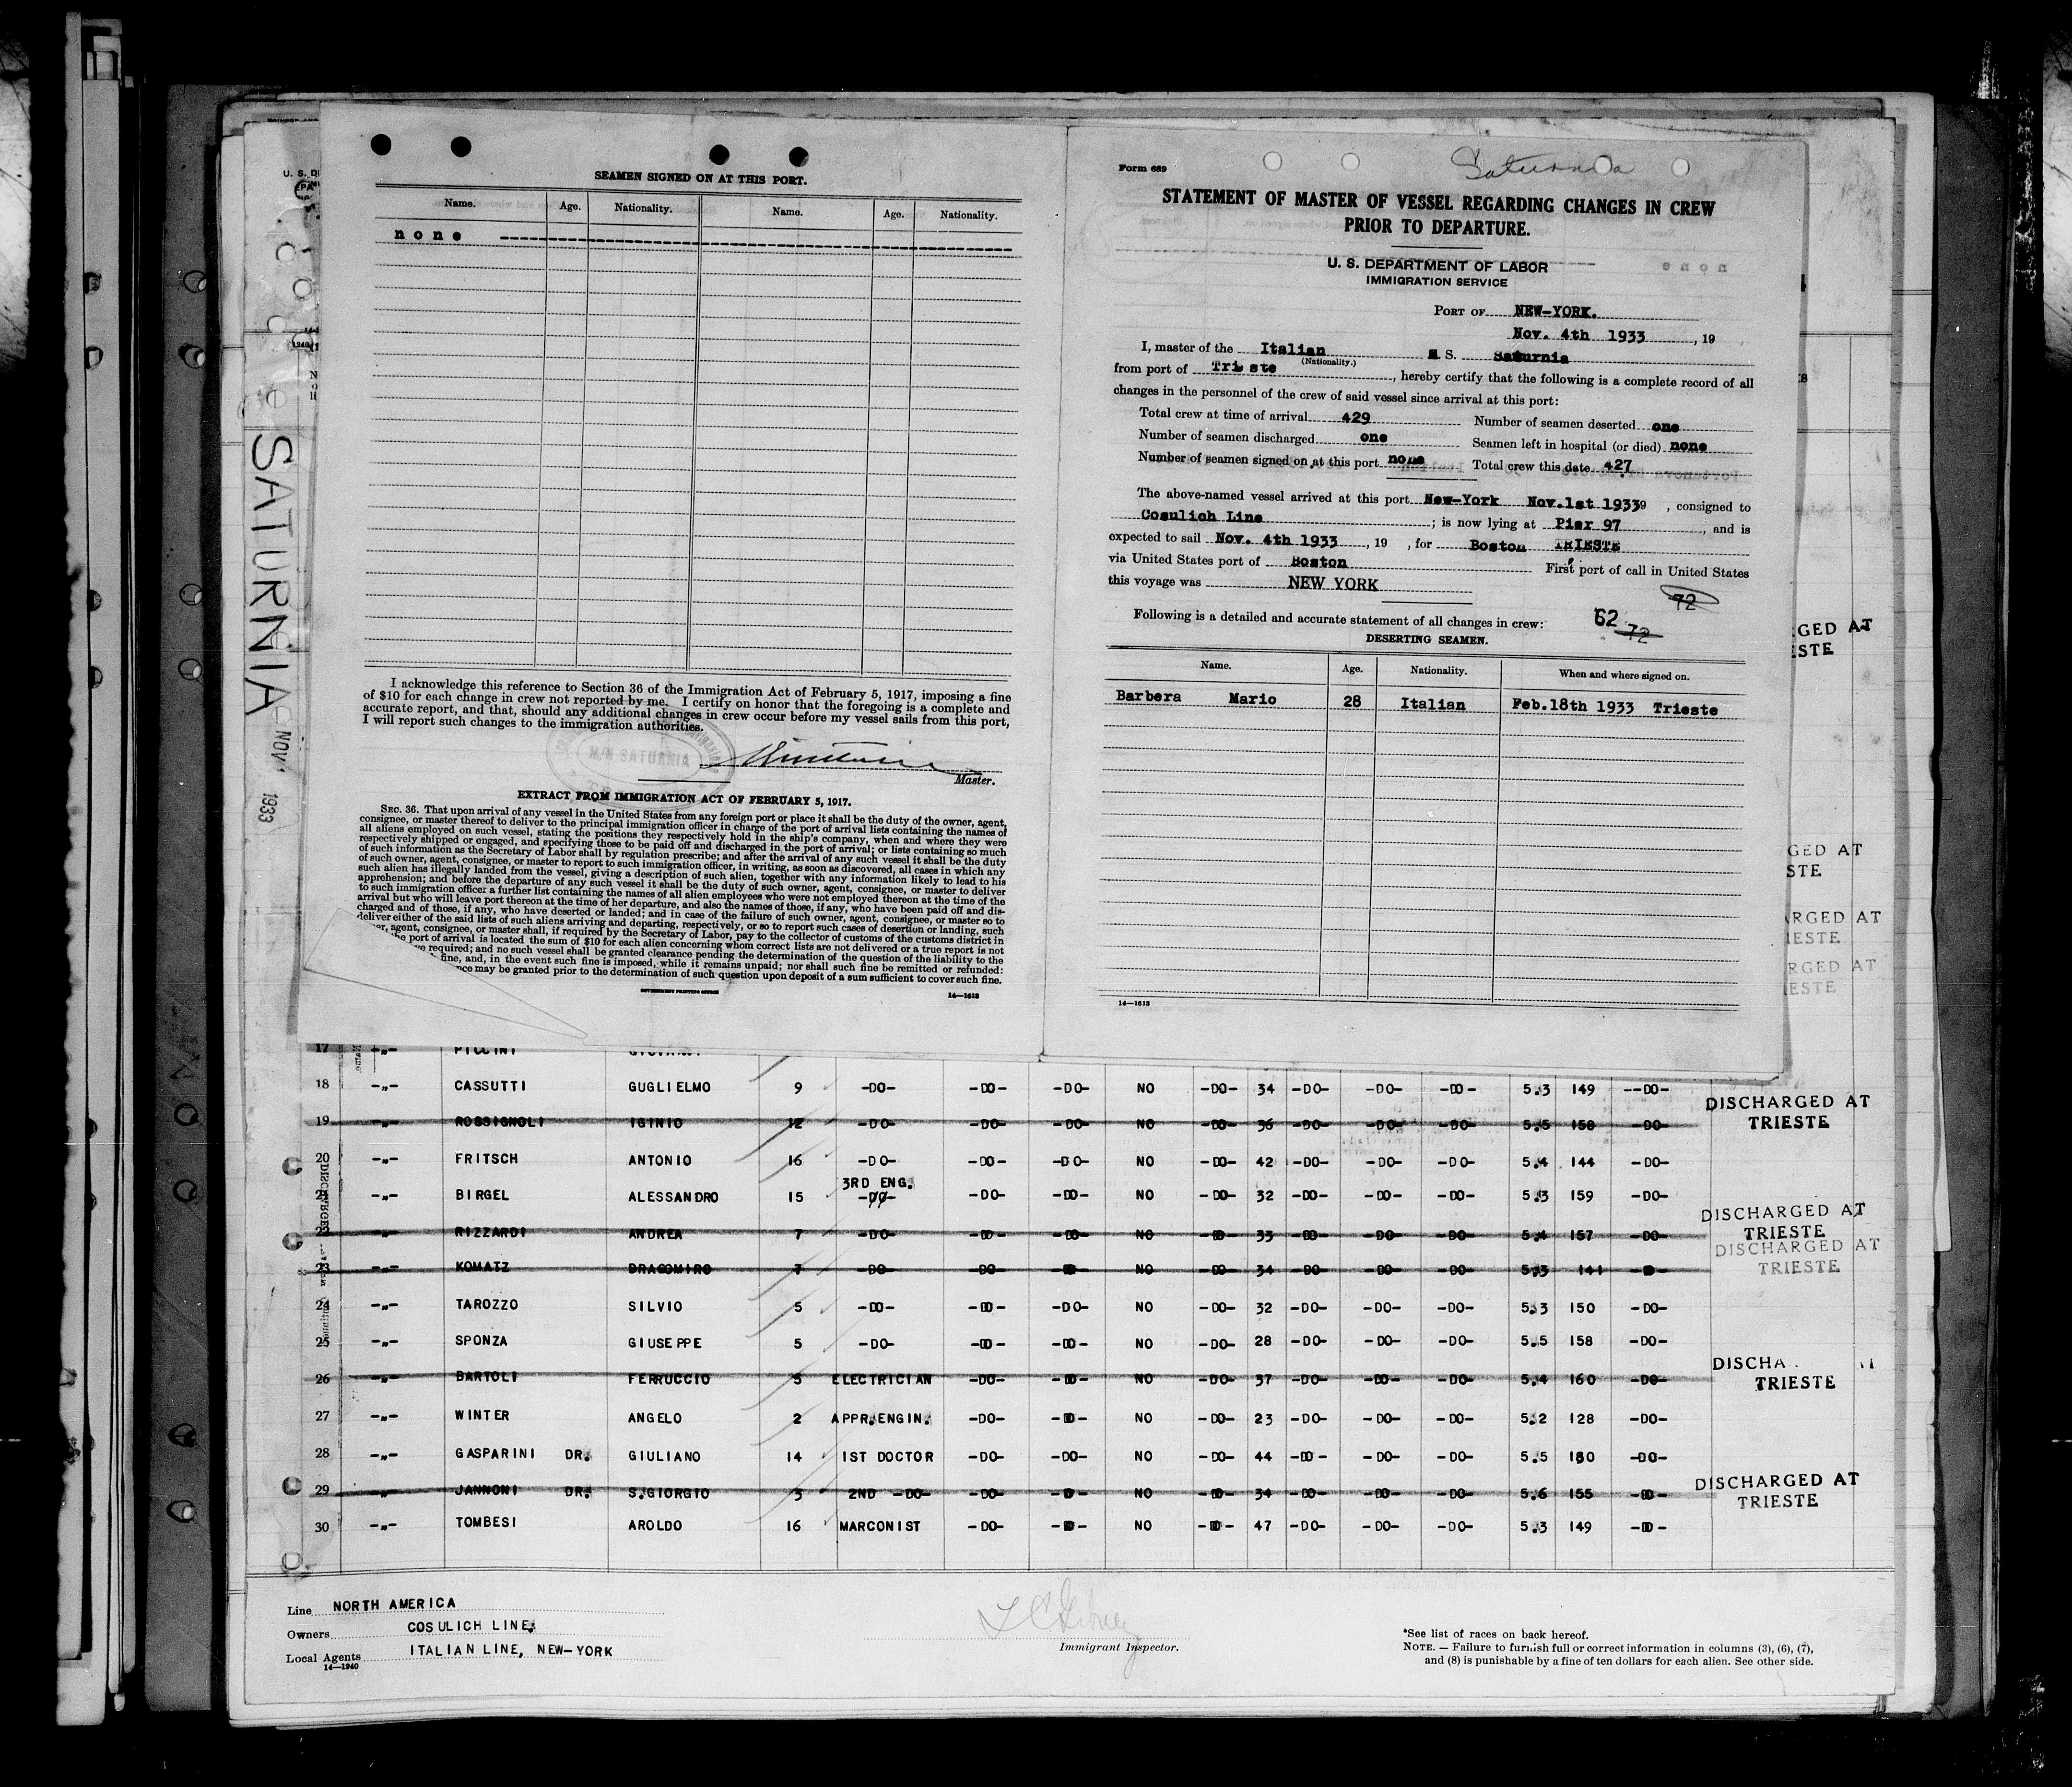 SATURNIA
NOV 1933
U. S. D
SEAMEN SIGNED ON AT THIS PORT.
Name. Age. Nationality. Name. Age. Nationality.
none
I acknowledge this reference to Section 36 of the Immigration Act of February 5, 1917, imposing a fine
of $10 for each change in crew not reported by me. I certify on honor that the foregoing is a complete and
accurate report, and that, should any additional changes in crew occur before my vessel sails from this port,
I will report such changes to the immigration authorities.
M/N SATURNIA
Master.
EXTRACT FROM IMMIGRATION ACT OF FEBRUARY 5, 1917.
SEC. 36. That upon arrival of any vessel in the United States from any foreign port or place it shall be the duty of the owner, agent,
consignee, or master thereof to deliver to the principal immigration officer in charge of the port of arrival lists containing the names of
all aliens employed on such vessel, stating the positions they respectively hold in the ship's company, when and where they were
respectively shipped or engaged, and specifying those to be paid off and discharged in the port of arrival; or lists containing so much
of such information as the Secretary of Labor shall by regulation prescribe; and after the arrival of any such vessel it shall be the duty
of such owner, agent, consignee, or master to report to such immigration officer, in writing, as soon as discovered, all cases in which any
such alien has illegally landed from the vessel, giving a description of such alien, together with any information likely to lead to his
apprehension; and before the departure of any such vessel it shall be the duty of such owner, agent, consignee, or master to deliver
to such immigration officer a further list containing the names of all alien employees who were not employed thereon at the time of the
arrival but who will leave port thereon at the time of her departure, and also the names of those, if any, who have been paid off and dis-
charged and of those, if any, who have deserted or landed; and in case of the failure of such owner, agent, consignee, or master so to
deliver either of the said lists of such aliens arriving and departing, respectively, or so to report such cases of desertion or landing, such
er, agent, consignee, or master shall, if required by the Secretary of Labor, pay to the collector of customs of the customs district in
he port of arrival is located the sum of $10 for each alien concerning whom correct lists are not delivered or a true report is not
ve required; and no such vessel shall be granted clearance pending the determination of the question of the liability to the
fine, and, in the event such fine is imposed, while it remains unpaid; nor shall such fine be remitted or refunded:
nce may be granted prior to the determination of such question upon deposit of a sum sufficient to cover such fine.
GOVERNMENT PRINTING OFFICE 14—1613
Form 689
Saturnia
STATEMENT OF MASTER OF VESSEL REGARDING CHANGES IN CREW
PRIOR TO DEPARTURE.
U. S. DEPARTMENT OF LABOR
IMMIGRATION SERVICE
PORT OF NEW-YORK.
Nov. 4th 1933, 19
I, master of the Italian M S. Saturnia
(Nationality.)
from port of Trieste, hereby certify that the following is a complete record of all
changes in the personnel of the crew of said vessel since arrival at this port:
Total crew at time of arrival 429 Number of seamen deserted one
Number of seamen discharged one Seamen left in hospital (or died) none
Number of seamen signed on at this port none Total crew this date 427
The above-named vessel arrived at this port New-York Nov.1st 19339, consigned to
Cosulich Line; is now lying at Pier 97, and is
expected to sail Nov. 4th 1933, 19 , for Boston TRIESTE
via United States port of Boston First port of call in United States
this voyage was NEW YORK
72
Following is a detailed and accurate statement of all changes in crew: 62 72
DESERTING SEAMEN.
Name. Age. Nationality. When and where signed on.
Barbera Mario 28 Italian Feb.18th 1933 Trieste
14—1613
GED AT
ESTE
GED AT
STE
RGED AT
IESTE
RGED AT
IESTE
17 -"- PICCINI GIOVANNI
18 -"- CASSUTTI GUGLIELMO 9 -DO- -DO- -DO- NO -DO- 34 -DO- -DO- -DO- 5.3 149 --DO-
DISCHARGED AT
TRIESTE
19 -"- ROSSIGNOLI IGINIO 12 -DO- -DO- -DO- NO -DO- 36 -DO- -DO- -DO- 5.5 158 -DO-
20 -"- FRITSCH ANTONIO 16 -DO- -DO- -DO- NO -DO- 42 -DO- -DO- -DO- 5.4 144 -DO-
3RD ENG.
21 -"- BIRGEL ALESSANDRO 15 -DO- -DO- -DO- NO -DO- 32 -DO- -DO- -DO- 5.3 159 -DO-
DISCHARGED AT
TRIESTE
22 -"- RIZZARDI ANDREA 7 -DO- -DO- -DO- NO -DO- 33 -DO- -DO- -DO- 5.4 157 -DO-
DISCHARGED AT
TRIESTE
23 -"- KOMATZ DRAGOMIRO 7 -DO- -DO- -DO- NO -DO- 34 -DO- -DO- -DO- 5.3 141 -DO-
24 -"- TAROZZO SILVIO 5 -DO- -DO- -DO- NO -DO- 32 -DO- -DO- -DO- 5.3 150 -DO-
25 -"- SPONZA GIUSEPPE 5 -DO- -DO- -DO- NO -DO- 28 -DO- -DO- -DO- 5.5 158 -DO-
DISCHA
TRIESTE
26 -"- BARTOLI FERRUCCIO 5 ELECTRICIAN -DO- -DO- NO -DO- 37 -DO- -DO- -DO- 5.4 160 -DO-
27 -"- WINTER ANGELO 2 APPR.ENGIN. -DO- -DO- NO -DO- 23 -DO- -DO- -DO- 5.2 128 -DO-
28 -"- GASPARINI DR. GIULIANO 14 1ST DOCTOR -DO- -DO- NO -DO- 44 -DO- -DO- -DO- 5.5 180 -DO-
DISCHARGED AT
TRIESTE
29 -"- JANNONI DR. S.GIORGIO 3 2ND -DO- -DO- -DO- NO -DO- 34 -DO- -DO- -DO- 5.6 155 -DO-
30 -"- TOMBESI AROLDO 16 MARCONIST -DO- -DO- NO -DO- 47 -DO- -DO- -DO- 5.3 149 -DO-
Line NORTH AMERICA
Owners COSULICH LINE.
Local Agents ITALIAN LINE, NEW-YORK
14—1240
Immigrant Inspector.
*See list of races on back hereof.
NOTE. — Failure to furnish full or correct information in columns (3), (6), (7),
and (8) is punishable by a fine of ten dollars for each alien. See other side.